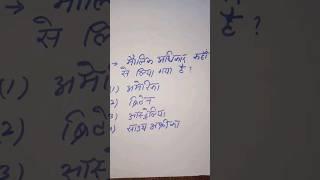 → मौलिक अधिकार कहाँ
से लिया गया है ?
(1) अमेरिका
(2) ब्रिटेन
(3) आस्ट्रेलिया
(4) साउथ अफ्रीका